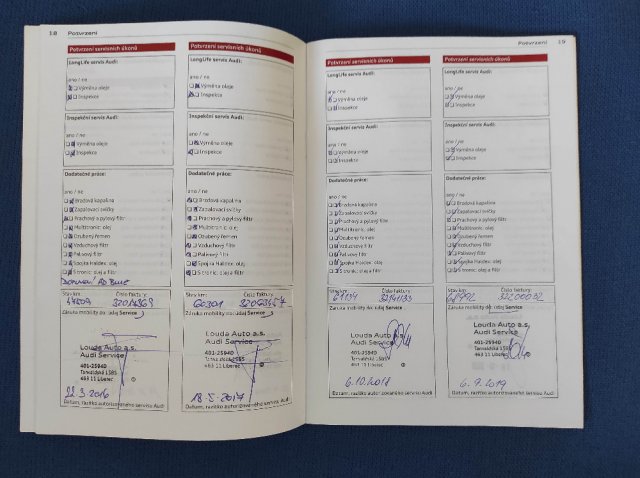 18 Potvrzení
Potvrzení servisních úkonů
LongLife servis Audi:
ano / ne
Výměna oleje
Inspekce
Inspekční servis Audi:
ano / ne
Výměna oleje
Inspekce
Dodatečné práce:
ano / ne
Brzdová kapalina
Zapalovací svíčky
Prachový a pylový filtr
Multitronic olej
Ozubený řemen
Vzduchový filtr
Palivový filtr
Spojka Haldex: olej
S tronic: olej a filtr
Stav km:
Číslo faktury:
Záruka mobility po: údaj Service
Louda Auto a.s.
Audi Service
401-25940
Tanvaldská 1585
463 11 Liberec
22.3.2016
Datum, razítko autorizovaného servisu Audi
Potvrzení servisních úkonů
LongLife servis Audi:
ano / ne
Výměna oleje
Inspekce
Inspekční servis Audi:
ano / ne
Výměna oleje
Inspekce
Dodatečné práce:
ano / ne
Brzdová kapalina
Zapalovací svíčky
Prachový a pylový filtr
Multitronic: olej
Ozubený řemen
Vzduchový filtr
Palivový filtr
Spojka Haldex: olej
S tronic: olej a filtr
Stav km:
Číslo faktury:
60301
Záruka mobility po: údaj Service
Louda Auto a.s.
Audi Service
401-25940
463 11 Liberec
18.5.2017
Datum, razítko autorizovaného servisu Audi
Potvrzení 19
Potvrzení servisních úkonů
LongLife servis Audi:
ano / ne
Výměna oleje
Inspekce
Inspekční servis Audi:
ano / ne
Výměna oleje
Inspekce
Dodatečné práce:
ano / ne
Brzdová kapalina
Zapalovací svíčky
Prachový a pylový filtr
Multitronic: olej
Ozubený řemen
Vzduchový filtr
Palivový filtr
Spojka Haldex: olej
S tronic: olej a filtr
Stav km:
Číslo faktury:
Záruka mobility do: údaj Service
Louda Auto a.s.
Audi Service
401-25940
Tanvaldská 1585
463 11 Liberec
Datum, razítko autorizovaného servisu Audi
Potvrzení servisních úkonů
LongLife servis Audi:
ano / ne
Výměna oleje
Inspekce
Inspekční servis Audi:
ano / ne
Výměna oleje
Inspekce
Dodatečné práce:
ano / ne
Brzdová kapalina
Zapalovací svíčky
Prachový a pylový filtr
Multitronic: olej
Ozubený řemen
Vzduchový filtr
Palivový filtr
Spojka Haldex: olej
S tronic: olej a filtr
Stav km:
Číslo faktury:
Záruka mobility do: údaj Service
Louda Auto a.s.
Audi Service
401-25940
Tanvaldská 1585
463 11 Liberec
6.9.2019
Datum, razítko autorizovaného servisu Audi